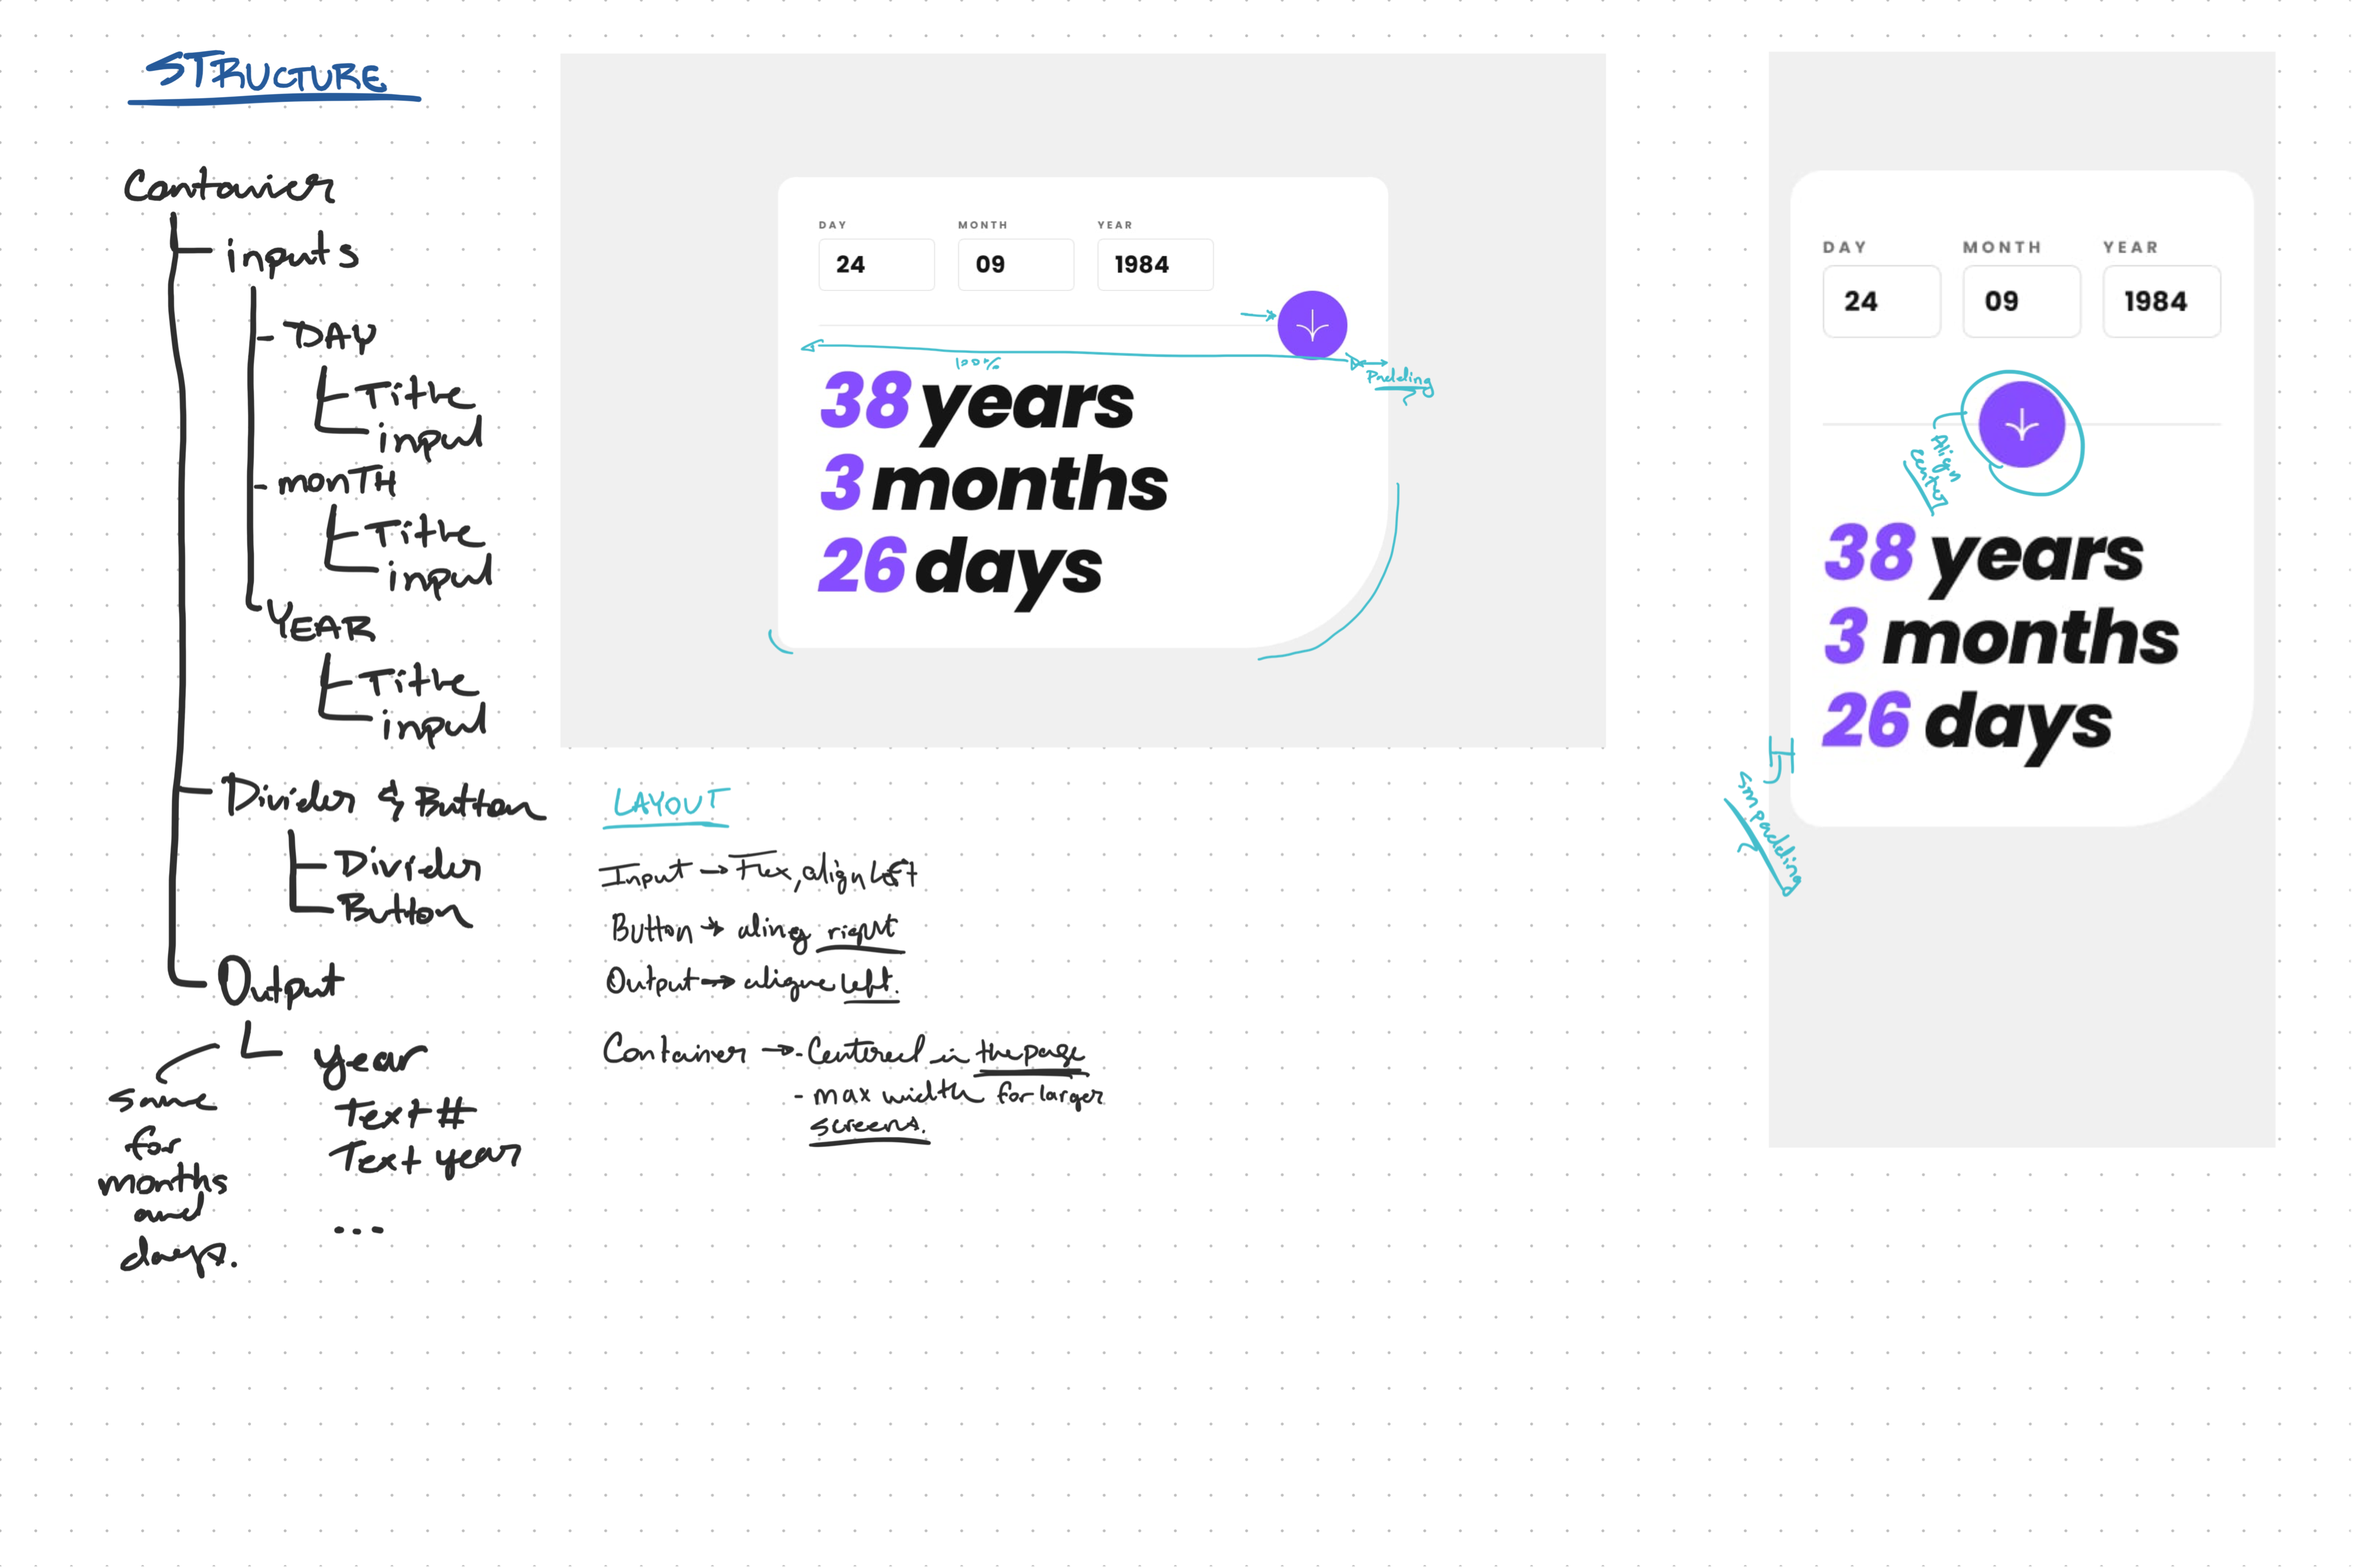 STRUCTURE
Contanier
inputs
- DAY
Title
input
- MONTH
Title
input
YEAR
Title
input
Divider & Button
Divider
Button
Output
year
Text #
Text year
...
same
for
months
and
days.
DAY MONTH YEAR
24 09 1984
100%
Padding
38 years
3 months
26 days
LAYOUT
Input → Flex, align Left
Button → aling right
Output → aligne left.
Container → - Centered in the page
- max width for larger
screens.
DAY MONTH YEAR
24 09 1984
Align
Center
38 years
3 months
26 days
Sm padding